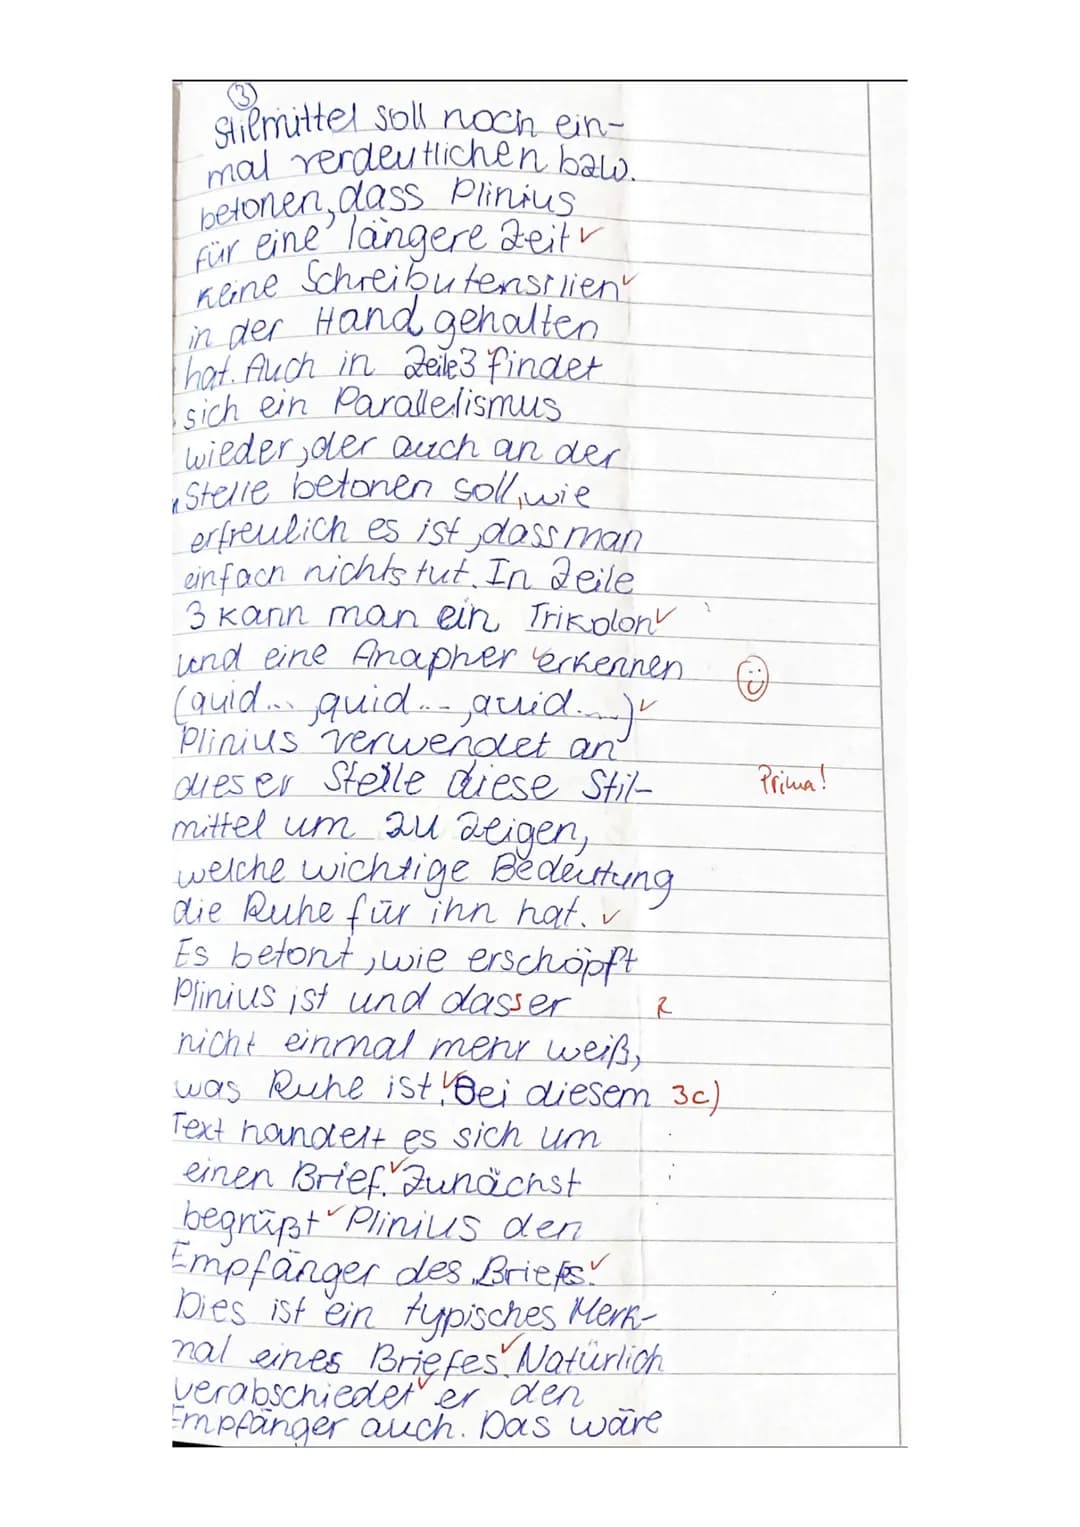 3
Stilmittel soll noch ein-
mal verdeutlichen bzw.
betonen, dass Plinius
für eine längere Zeit
keine Schreibutensilien
in der Hand gehalten
hat. Auch in Zeile 3 findet
sich ein Parallelismus
wieder, der auch an der
Stelle betonen soll, wie
erfreulich es ist, dass man
einfach nichts tut. In Zeile
3 kann man ein Trikolon
und eine Anapher erkennen
(quid..., quid..., quid...)
Plinius verwendet an
dieser Stelle diese Stil- Prima!
mittel um zu zeigen,
welche wichtige Bedeutung
die Ruhe für ihn hat.
Es betont, wie erschöpft
Plinius ist und dass er R
nicht einmal mehr weiß,
was Ruhe ist. Bei diesem 3c)
Text handelt es sich um
einen Brief. Zunächst
begrüßt Plinius den
Empfänger des Briefs.
Dies ist ein typisches Merk-
mal eines Briefes. Natürlich
verabschiedet er den
Empfänger auch. Das wäre